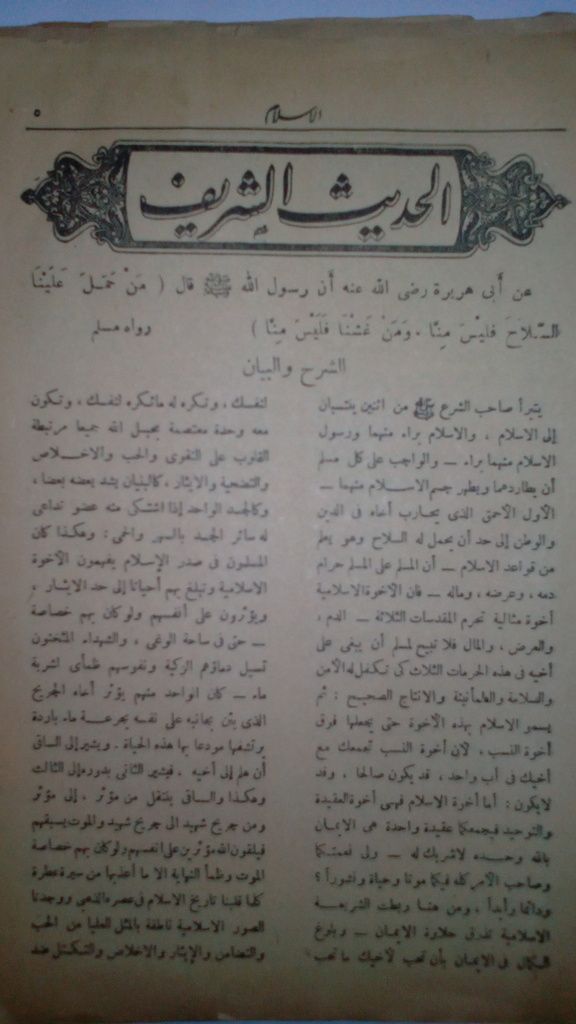 ٥
الاسلام
الحديث الشريف
عن أبى هريرة رضى الله عنه أن رسول الله ﷺ قال ( مَنْ حَمَلَ عَلَيْنَا
السِّلَاحَ فَلَيْسَ مِنَّا . وَمَنْ غَشَّنَا فَلَيْسَ مِنَّا ) رواه مسلم
الشرح والبيان
يتبرأ صاحب الشرع ﷺ من اثنين ينتسبان
إلى الاسلام ، والاسلام براء منهما ورسول
الاسلام منهما براء — والواجب على كل مسلم
أن يطاردهما ويطهر جسم الاسلام منهما —
الأول الأحمق الذى يحارب أخاه فى الدين
والوطن إلى حد أن يحمل له السلاح وهو يعلم
من قواعد الاسلام — أن المسلم على المسلم حرام
دمه ، وعرضه ، وماله — فان الأخوة الاسلامية
أخوة مثالية تحرم المقدسات الثلاثة — الدم ،
والعرض ، والمال فلا تبيح لمسلم أن يبغى على
أخيه فى هذه الحرمات الثلاث كى تكفل له الأمن
والسلامة والطمأنينة والانتاج الصحيح : ثم
يسمو الاسلام بهذه الأخوة حتى يجعلها فرق
أخوة النسب ، لان أخوة النسب تجمعك مع
أخيك فى أب واحد ، قد يكون صالحا ، وقد
لايكون : أما أخوة الاسلام فهى أخوة العقيدة
والتوحيد فيجمعكما عقيدة واحدة هى الايمان
بالله وحده لاشريك له — ولى نعمتكما
وصاحب الأمر كله فيكما موتا وحياة ونشورا ؟
ودائما وأبدا ، ومن هنا ربطت الشريعة
الاسلامية تذوق حلاوة الايمان — وبلوغ
الكمال فى الايمان بأن تحب لأخيك ما تحب
لنفسك ، وتكره له ماتكره لنفسك ، وتكون
معه وحدة معتصمة بحبل الله جميعا مرتبطة
القلوب على التقوى والحب والاخلاص
والتضحية والايثار ، كالبنيان يشد بعضه بعضا ،
وكالجسد الواحد إذا اشتكى منه عضو تداعى
له سائر الجسد بالسهر والحمى : وهكذا كان
المسلمون فى صدر الإسلام يفهمون الأخوة
الاسلامية وتبلغ بهم أحيانا إلى حد الايثار .
ويؤثرون على أنفسهم ولو كان بهم خصاصة
— حتى فى ساحة الوغى ، والشهداء المثخنون
تسيل دماؤهم الزكية ونفوسهم ظمأى لشربة
ماء — كان الواحد منهم يؤثر أخاه الجريح
الذى يئن بجانبه على نفسه بجرعة ماء باردة
يرتشفها مودعا بها هذه الحياة . ويشير إلى الساقى
أن هلم إلى أخيه . فيشير الثانى بدوره إلى الثالث
وهكذا والساقى ينتقل من مؤثر . إلى مؤثر
ومن جريح شهيد الى جريح شهيد والموت يسبقهم
فيلقون الله مؤثرين على انفسهم ولو كان بهم خصاصة
الموت وظمأ النهاية الا ما أعذبها من سيرة عطرة
كلما قلبنا تاريخ الاسلام فى عصره الذهبى ووجدنا
الصور الاسلامية ناطقة بالمثل العليا من الحب
والتضامن والإيثار والاخلاص والتكتل ضد